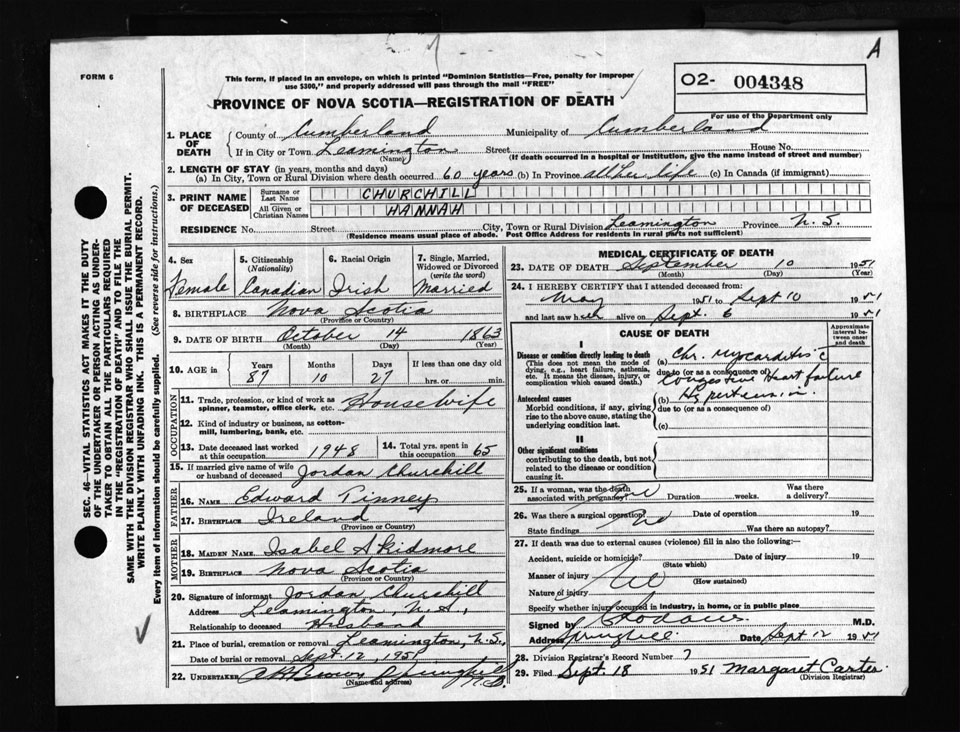 A
FORM 6
This form, if placed in an envelope, on which is printed "Dominion Statistics—Free, penalty for improper
use $300," and properly addressed will pass through the mail "FREE"
02- 004348
For use of the Department only
PROVINCE OF NOVA SCOTIA—REGISTRATION OF DEATH
1. PLACE OF DEATH
County of Cumberland Municipality of Cumberland
If in City or Town Leamington Street House No.
(Name) (If death occurred in a hospital or institution, give the name instead of street and number)
2. LENGTH OF STAY (in years, months and days)
(a) In City, Town or Rural Division where death occurred 60 years (b) In Province all her life (c) In Canada (if immigrant)
3. PRINT NAME OF DECEASED
Surname or Last Name CHURCHILL
All Given or Christian Names HANNAH
RESIDENCE No. Street City, Town or Rural Division Leamington Province N.S.
(Residence means usual place of abode. Post Office Address for residents in rural parts not sufficient)
4. Sex Female
5. Citizenship (Nationality) Canadian
6. Racial Origin Irish
7. Single, Married, Widowed or Divorced (write the word) Married
8. BIRTHPLACE Nova Scotia
(Province or Country)
9. DATE OF BIRTH October 14 1863
(Month) (Day) (Year)
10. AGE in Years 87 Months 10 Days 27 If less than one day hrs. or min.
OCCUPATION
11. Trade, profession, or kind of work as spinner, teamster, office clerk, etc. Housewife
12. Kind of industry or business, as cotton-mill, lumbering, bank, etc.
13. Date deceased last worked at this occupation 1948
14. Total yrs. spent in this occupation 65
15. If married give name of wife or husband of deceased Jordan Churchill
FATHER
16. NAME Edward Tinney
17. BIRTHPLACE Ireland
(Province or Country)
MOTHER
18. MAIDEN NAME Isabel Skidmore
19. BIRTHPLACE Nova Scotia
(Province or Country)
20. Signature of informant Jordan Churchill
Address Leamington, N.S.,
Relationship to deceased Husband
21. Place of burial, cremation or removal Leamington, N.S.
Date of burial or removal Sept. 12, 1951
22. UNDERTAKER Brown Springhill N.S.
(Name and address)
MEDICAL CERTIFICATE OF DEATH
23. DATE OF DEATH September 10 1951
(Month) (Day) (Year)
24. I HEREBY CERTIFY that I attended deceased from:
May 1951 to Sept 10 1951
and last saw her alive on Sept. 6 1951
CAUSE OF DEATH
Approximate interval between onset and death
I
Disease or condition directly leading to death
(This does not mean the mode of dying, e.g., heart failure, asthenia, etc. It means the disease, injury, or complication which caused death.)
(a) Chr. Myocarditis c
due to (or as a consequence of)
Congestive Heart failure
Antecedent causes
Morbid conditions, if any, giving rise to the above cause, stating the underlying condition last.
(b) Hypertension.
due to (or as a consequence of)
(c)
II
Other significant conditions
contributing to the death, but not related to the disease or condition causing it.
25. If a woman, was the death associated with pregnancy? no Duration weeks. Was there a delivery?
26. Was there a surgical operation? No Date of operation 19
State findings Was there an autopsy?
27. If death was due to external causes (violence) fill in also the following:—
Accident, suicide or homicide? Date of injury 19
(State which)
Manner of injury No (How sustained)
Nature of injury
Specify whether injury occurred in industry, in home, or in public place
Signed by M.D.
Address Springhill Date Sept 12 1951
28. Division Registrar's Record Number 7
29. Filed Sept. 18 1951 Margaret Carter
(Division Registrar)
SEC. 46—VITAL STATISTICS ACT MAKES IT THE DUTY
OF THE UNDERTAKER OR PERSON ACTING AS UNDER-
TAKER TO OBTAIN ALL THE PARTICULARS REQUIRED
IN THE "REGISTRATION OF DEATH" AND TO FILE THE
SAME WITH THE DIVISION REGISTRAR WHO SHALL ISSUE THE BURIAL PERMIT.
WRITE PLAINLY WITH UNFADING INK. THIS IS A PERMANENT RECORD.
Every item of information should be carefully supplied. (See reverse side for instructions.)